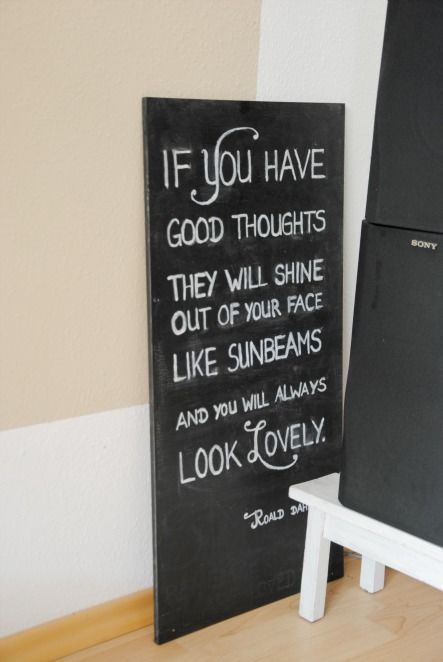 IF YOU HAVE
GOOD THOUGHTS
THEY WILL SHINE
OUT OF YOUR FACE
LIKE SUNBEAMS
AND YOU WILL ALWAYS
LOOK LOVELY.
ROALD DAH
SONY